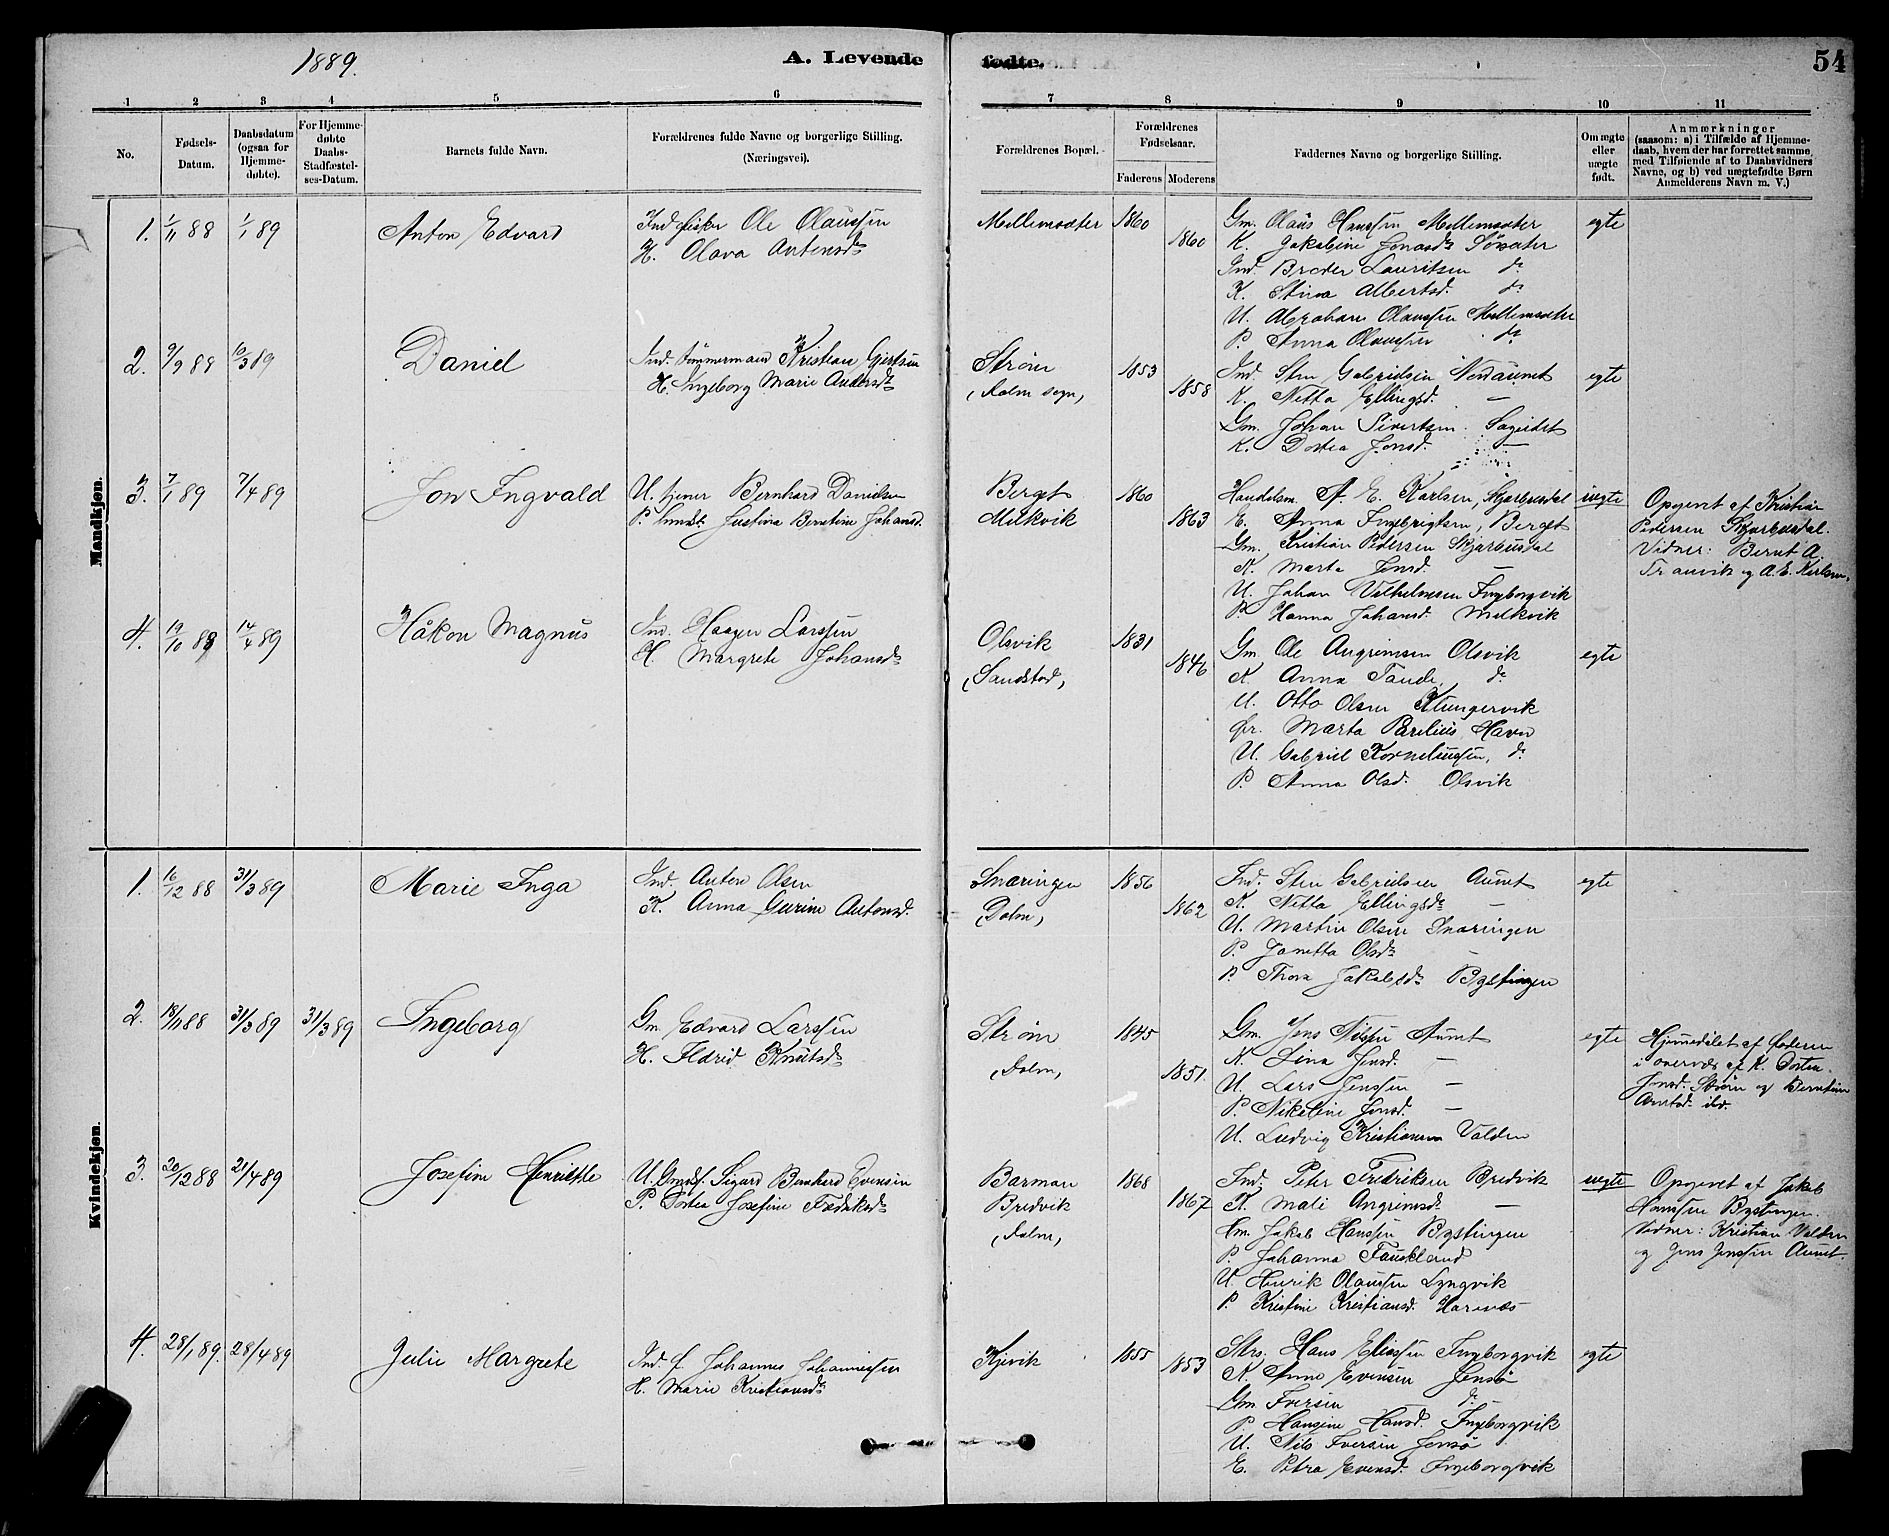 1889.
A. Levende
fødte.
54
1 2 3 4 5 6 7 8 9 10 11
No.
Fødsels-
Datum.
Daabsdatum
(ogsaa for
Hjemme-
døbte).
For Hjemme-
døbte
Daabs-
Stadfæstel-
ses-Datum.
Barnets fulde Navn.
Forældrenes fulde Navne og borgerlige Stilling.
(Næringsvei).
Forældrenes Bopæl.
Forældrenes
Fødselsaar.
Faderens Moderens
Faddernes Navne og borgerlige Stilling.
Om ægte
eller
uægte
født.
Anmærkninger
(saasom: a) i Tilfælde af Hjemme-
daab, hvem der har forrettet samme,
med Tilføiende af to Daabsvidners
Navne, og b) ved uægtefødte Børn
Anmelderens Navn m. V.)
Mandkjøn.
1. 1/11 88 1/1 89 Anton Edvard
Ind fisker Ole Olaussen
H. Olava Antonsdr
Mellemsæter 1860
1860
Gm. Olaus Hanssen Mellemsæter
K. Jakobine Jonasdr Sørsæter
Ind. Broder Lauritsen do
K. Stina Albertsd. do
U. Abraham Olaussen Mellemsæter
P. Anna Olaussen do
egte
2. 9/9 88 10/3 89 Daniel
Ind. tømmermand Kristian Gjertsen
H. Ingeborg Marie Andersdr
Strøm
(Dolm sogn)
1853
1858
Ind. Sten Gabrielsen Nordaunet
K. Netta Ellingsd. —
Gm. Johan Sivertsen Sageidet
K. Dortea Jonsd. —
egte
3. 7/1 89 7/4 89 Jon Ingvald
U. tjener Bernhard Danielsen
P. Justina Berntine Johansd.
Berget
Melkvik
1860
1863
Handelsm. A. E. Karlsen, Skjærbusdal
E. Anna Ingebrigtsen, Berget
Gm. Kristian Pedersen Skjærbusdal
K. Marta Jensd.
U. Johan Vilhelmsen Ingborgvik
P. Hanna Johansd. Melkvik
uegte
Opgivet af Kristian
Pedersen Skjærbusdal.
Vidner: Bernt A.
Tranvik og A. E. Karlsen,
4. 19/10 88 14/4 89 Håkon Magnus
Ind. Haagen Larssen
H. Margrete Johansdr
Olsvik
(Sandstad)
1831
1846
Gm. Ole Angrimsen Olsvik
K. Anna Tande, do
U. Otto Olsen Klungervik
Fr. Marta Parelius Havn
U. Gabriel Korneliussen, do
P. Anna Olsd. Olsvik
egte
Kvindekjøn.
1. 16/12 88 31/3 89 Marie Inga
Ind. Anton Olsen
K. Anna Gurine Antonsd.
Snæringen
(Dolm)
1856
1862
Ind. Sten Gabrielsen Aunet
K. Netta Ellingsdr —
U. Martin Olsen Snæringen
P. Janetta Olsdr
P. Thora Jakobsdr Bystingen
egte
2. 18/11 88 31/3 89 31/3 89 Ingeborg
Gm. Edvard Larssen
H. Ildrid Knutsdr
Strøm
(Dolm)
1845
1851.
Gm. Jens Nilssen Aunet
K. Lina Jensd. —
U. Lars Jenssen —
P. Nikoline Jensd. —
U. Ludvig Kristiansen Valden
egte
Hjemmedøbt af Faderen
i overvær af K. Dortea
Jonsd. Strøm og Berntine
ibd.
3. 20/12 88 21/4 89 Josefine Henrikke
U. Gmdsf. Sigurd Bernhard Evensen
P. Dortea Josefine Fredriksdr
Barman
Bredvik
(Dolm)
1868
1867
Ind. Peter Fredriksen Bredvik
K. Mali Angrimsdr —
Gm. Jakob Hanssen Bystingen
P. Johanna Fauskland
U. Henrik Olaussen Lyngvik
P. Kristine Kristiansd. Hernæs
uegte
Opgivet af Jakob
Hanssen Bystingen.
Vidner: Kristian Valden
og Jens Jenssen Aunet.
4. 28/1 89. 28/4 89 Julie Margrete
Ind. f. Johannes Johannessen
H. Marie Kristiansdr
Kjervik
1855
1853
Strs. Hans Eliassen Ingborgvik
K. Anne Evensen Jensø
Gm. Iversen do
P. Hansine Hansd. Ingeborgvik
U. Nils Iversen Jensø
E. Petra Evensd. Ingeborgvik
egte